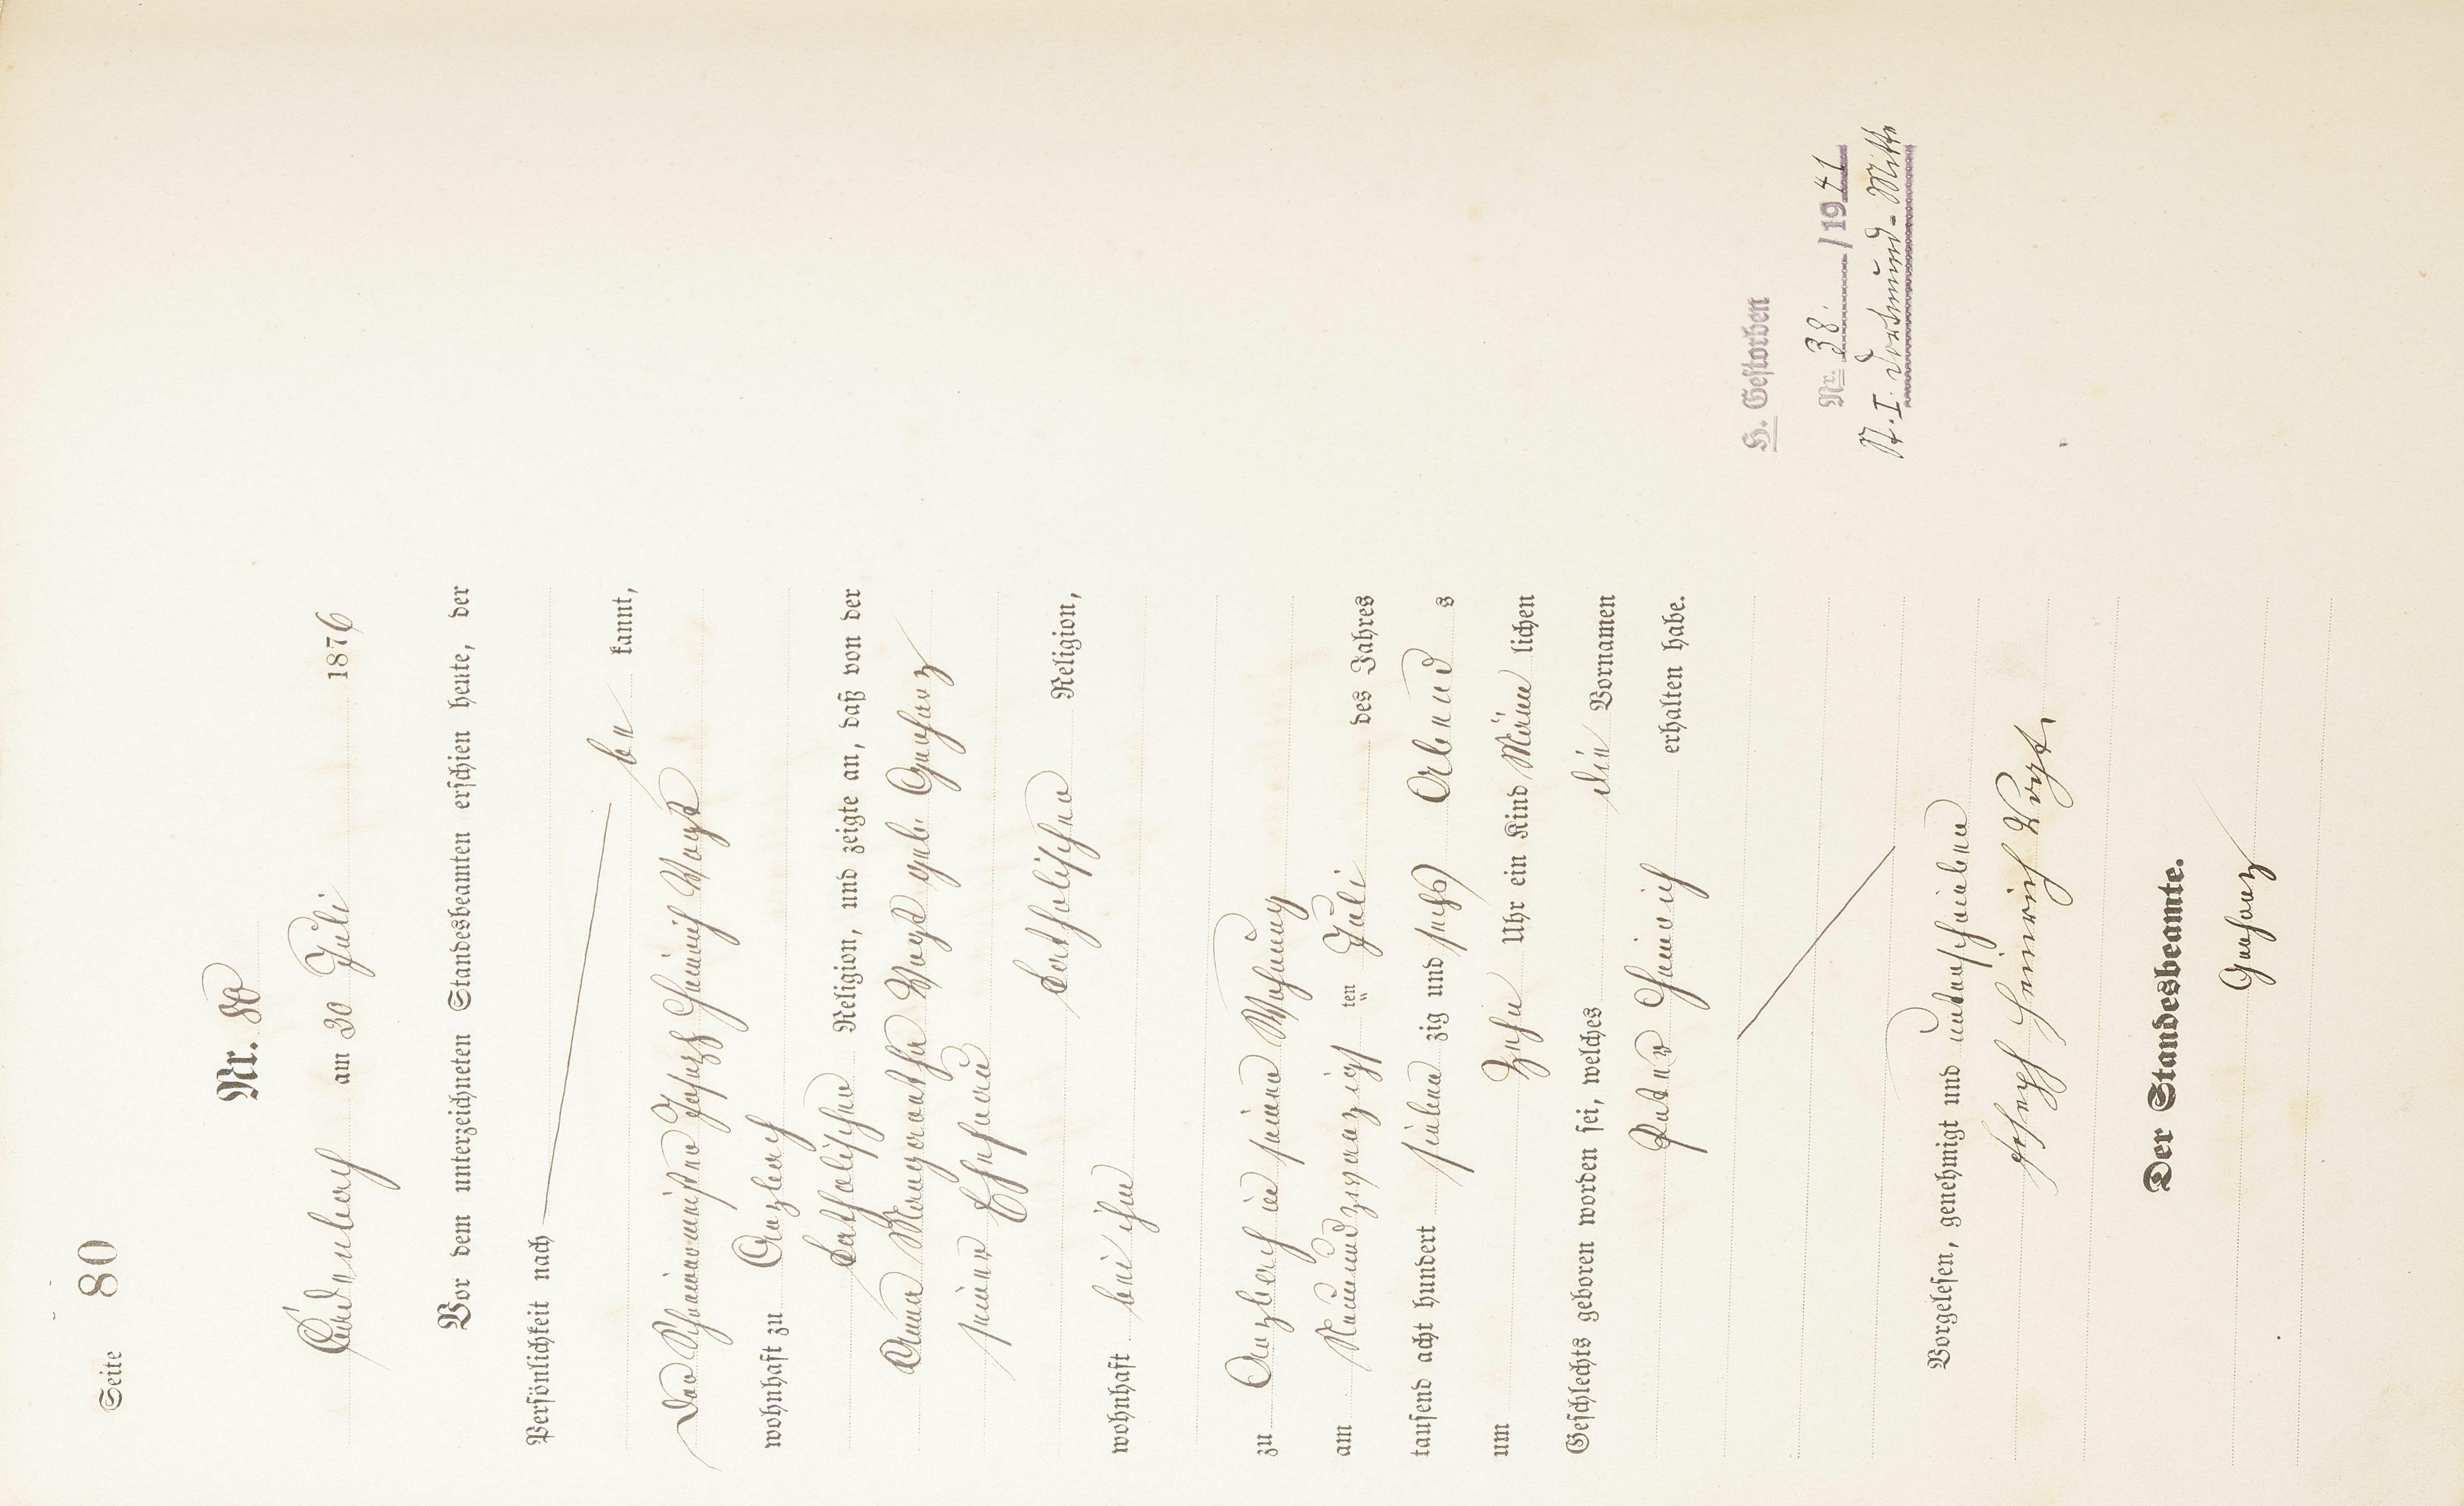 Seite 80
Nr. 80
am 30 Juli 1876
Vor dem unterzeichneten Standesbeamten erschien heute, der
Persönlichkeit nach
be kannt,
Der Schreinermeister Joseph Heinrich Vogt
wohnhaft zu
katholischer Religion, und zeigte an, daß von der
Anna Margaretha Vogt geb. Gerharz
seiner Ehefrau
katholischer Religion,
wohnhaft bei ihm
zu in seiner Wohnung
am Neunundzwanzigst ten Juli des Jahres
tausend acht hundert sieben zig und sechs Abend s
um Zehn Uhr ein Kind Männ lichen
Geschlechts geboren worden sei, welches die Vornamen
Peter Heinrich erhalten habe.
Vorgelesen, genehmigt und unterschrieben
Joseph Heinrich Vogt
Der Standesbeamte.
Gerharz
H. Gestorben
Nr. 38 /1941
St. I. Dortmund-Mitte